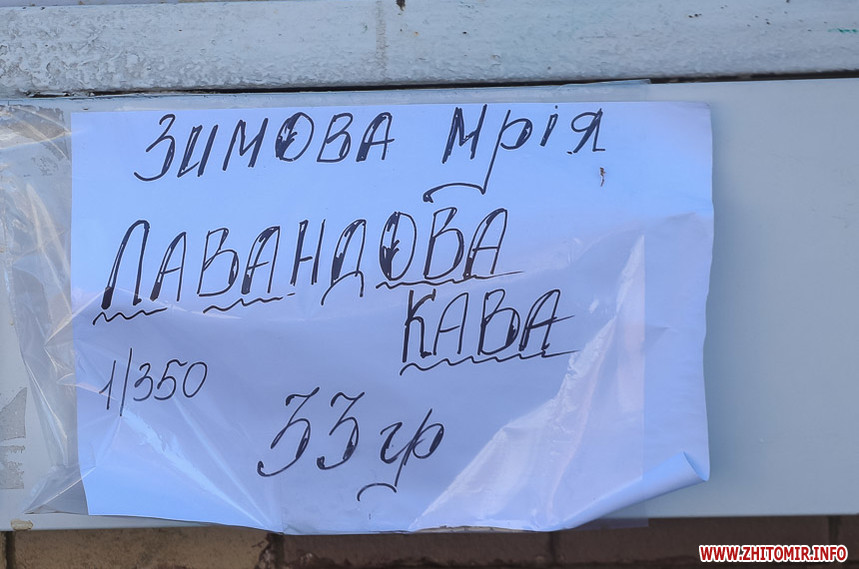 Зимова мрія
Лавандова
кава
1/350
33 гр
www.zhitomir.info